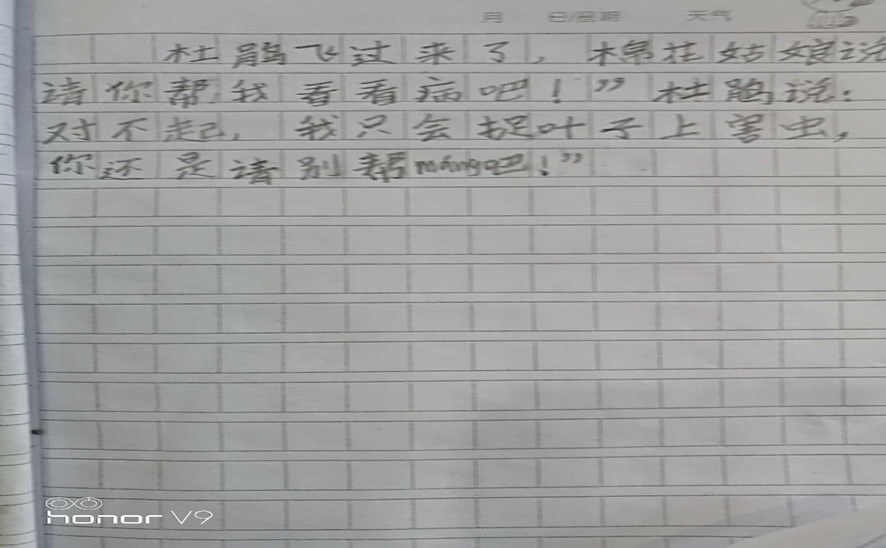 月 日/星期 天气
杜鹃飞过来了，棉花姑娘说
请你帮我看看病吧！”杜鹃说：
对不起，我只会捉叶子上害虫，
你还是请别帮máng吧！”
honor V9